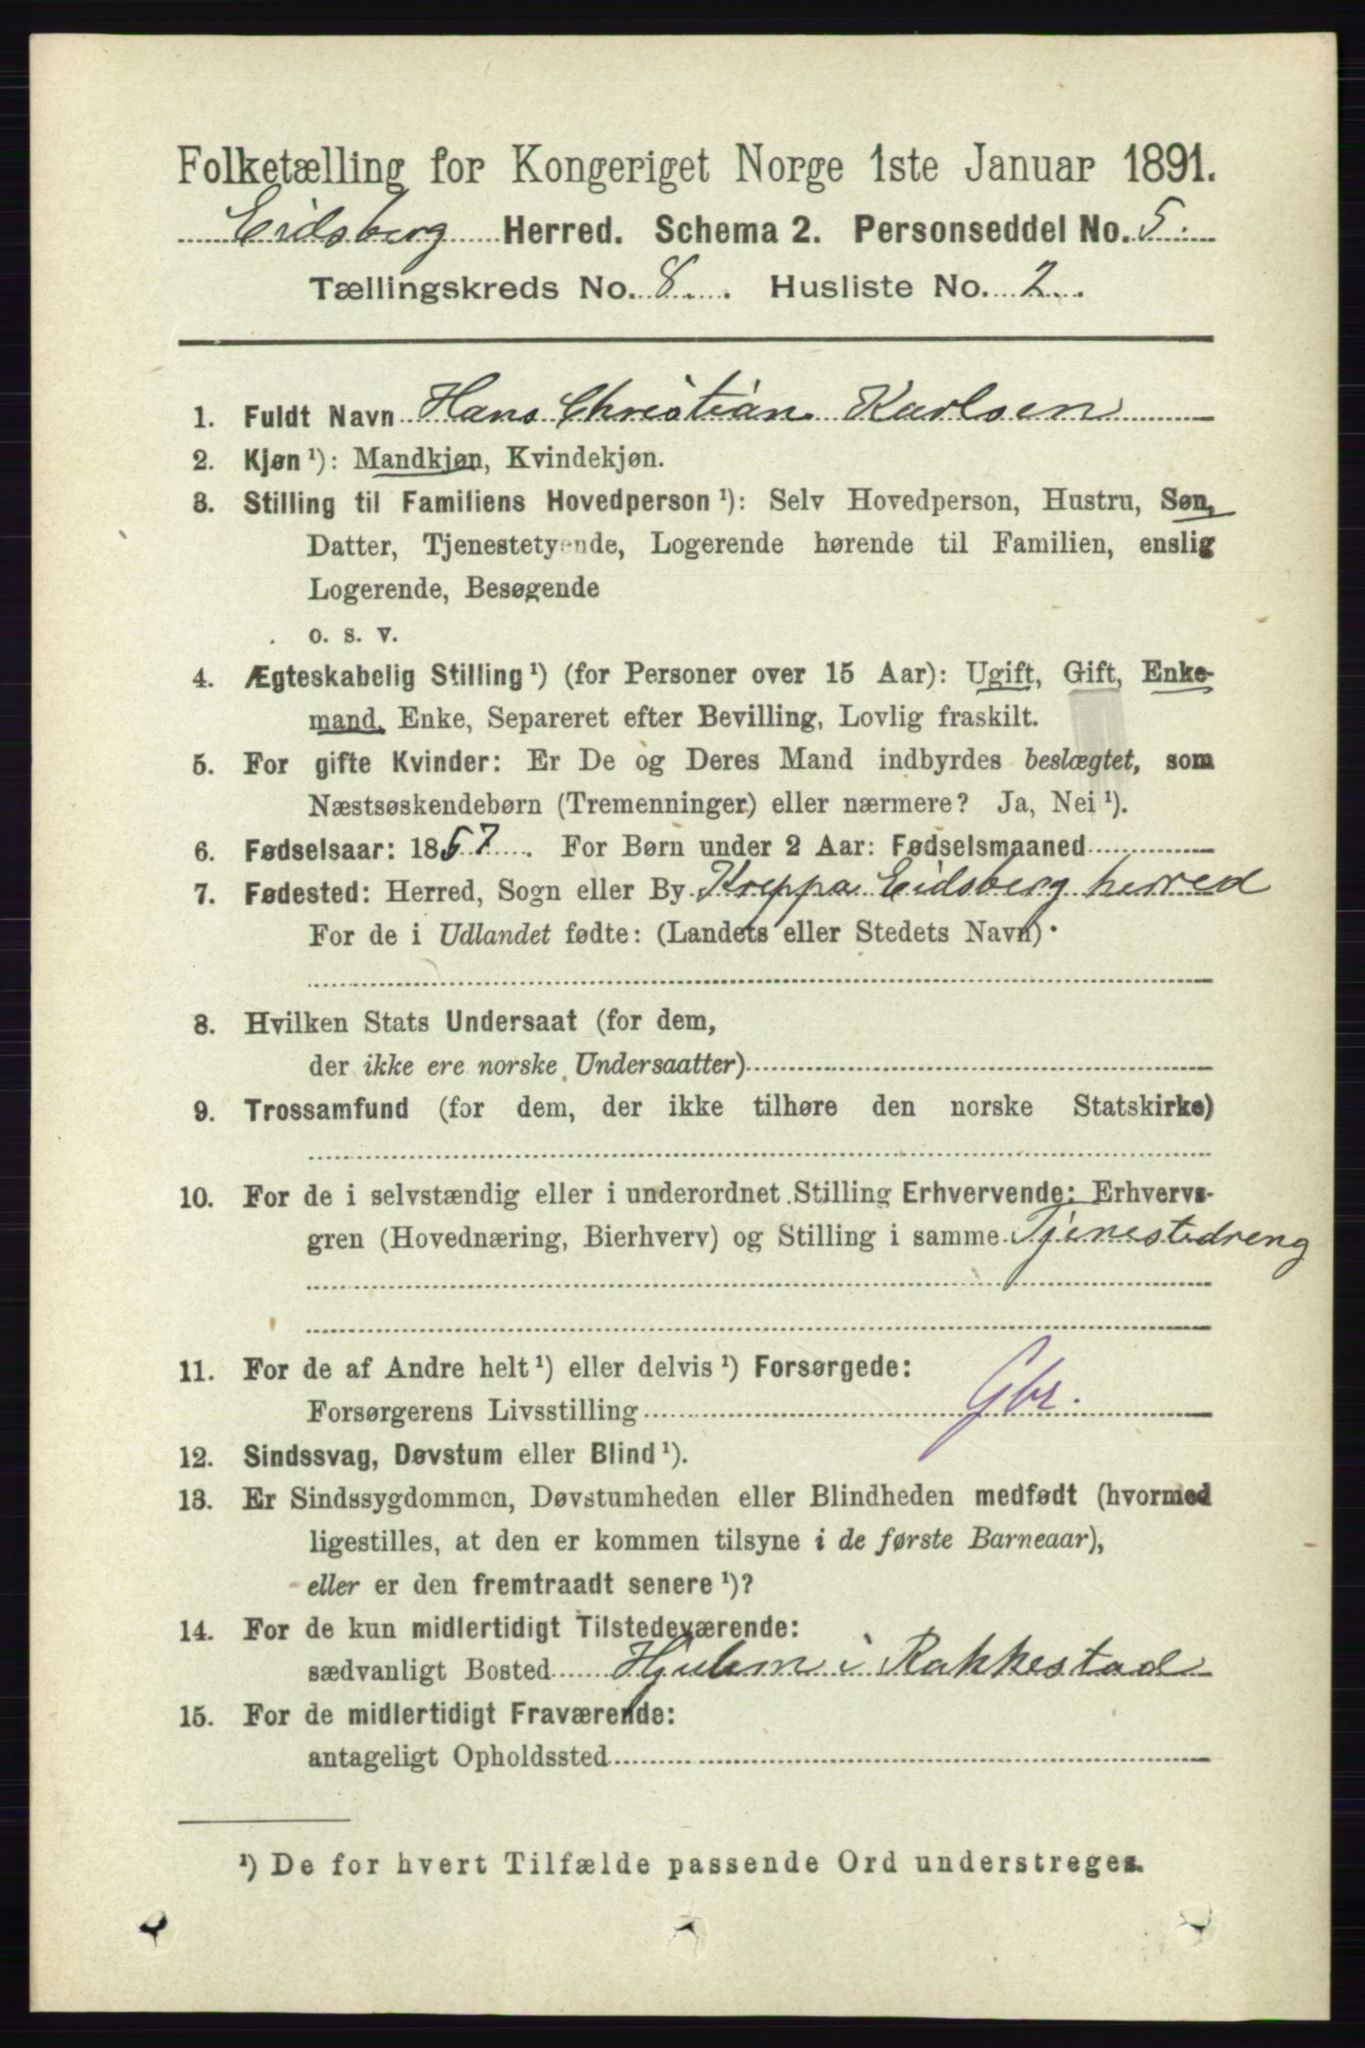 Folketælling for Kongeriget Norge 1ste Januar 1891.
Eidsberg Herred. Schema 2. Personseddel No. 5.
Tællingskreds No. 8. Husliste No. 2.
1. Fuldt Navn Hans Christian Karlsen
2. Kjøn ¹): Mandkjøn, Kvindekjøn.
3. Stilling til Familiens Hovedperson ¹): Selv Hovedperson, Hustru, Søn,
Datter, Tjenestetyende, Logerende hørende til Familien, enslig
Logerende, Besøgende
o. s. v.
4. Ægteskabelig Stilling ¹) (for Personer over 15 Aar): Ugift, Gift, Enke-
mand, Enke, Separeret efter Bevilling, Lovlig fraskilt.
5. For gifte Kvinder: Er De og Deres Mand indbyrdes beslægtet, som
Næstsøskendebørn (Tremenninger) eller nærmere? Ja, Nei ¹).
6. Fødselsaar: 1857. For Børn under 2 Aar: Fødselsmaaned
7. Fødested: Herred, Sogn eller By Kreppa Eidsberg herred
For de i Udlandet fødte: (Landets eller Stedets Navn)
8. Hvilken Stats Undersaat (for dem,
der ikke ere norske Undersaatter)
9. Trossamfund (for dem, der ikke tilhøre den norske Statskirke)
10. For de i selvstændig eller i underordnet Stilling Erhvervende: Erhvervs-
gren (Hovednæring, Bierhverv) og Stilling i samme Tjenestedreng
11. For de af Andre helt ¹) eller delvis ¹) Forsørgede:
Forsørgerens Livsstilling Gbr.
12. Sindssvag, Døvstum eller Blind ¹).
13. Er Sindssygdommen, Døvstumheden eller Blindheden medfødt (hvormed
ligestilles, at den er kommen tilsyne i de første Barneaar),
eller er den fremtraadt senere ¹)?
14. For de kun midlertidigt Tilstedeværende:
sædvanligt Bosted Hjulem i Rakkestad
15. For de midlertidigt Fraværende:
antageligt Opholdssted
¹) De for hvert Tilfælde passende Ord understreges.